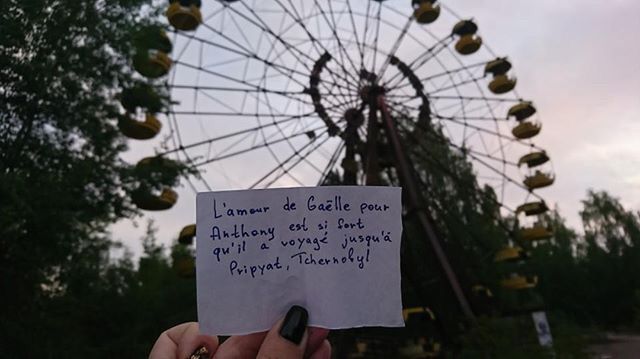 L'amour de Gaëlle pour
Anthony est si fort
qu'il a voyagé jusqu'à
Pripyat, Tchernobyl